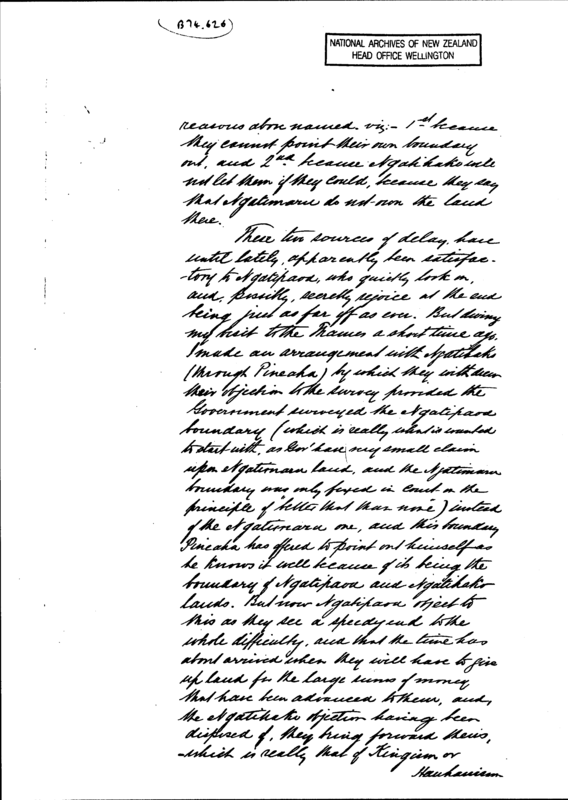 B74.626
NATIONAL ARCHIVES OF NEW ZEALAND
HEAD OFFICE WELLINGTON
reasons above named. viz:- 1st because
they cannot point their own boundary
out, and 2nd because Ngatihako will
not let them if they could, because they say
that Ngatimaru do not own the land
there.
These two sources of delay, have
until lately, apparently been satisfac-
-tory to Ngatipaoa, who quietly look on,
and, possibly, secretly rejoice at the end
being just as far off as ever. But during
my visit to the Thames a short time ago.
I made an arrangement with Ngatihako
(through Pineaha) by which they withdrew
their objection to the survey provided the
Government surveyed the Ngatipaoa
boundary (which is really what is wanted
to start with, as Govt have very small claim
upon Ngatimaru land, and the Ngatimaru
boundary was only fixed in Court on the
principle of "better that than none") instead
of the Ngatimaru one, and this boundary
Pineaha has offered to point out himself as
he knows it well because of its being the
boundary of Ngatipaoa and Ngatihako
lands. But now Ngatipaoa object to
this as they see a speedy end to the
whole difficulty, and that the time has
about arrived when they will have to give
up land for the large sums of money
that have been advanced to them, and,
the Ngatihako objection having been
disposed of, they bring forward theirs,
-which is really that of Kingism or
Hauhauism